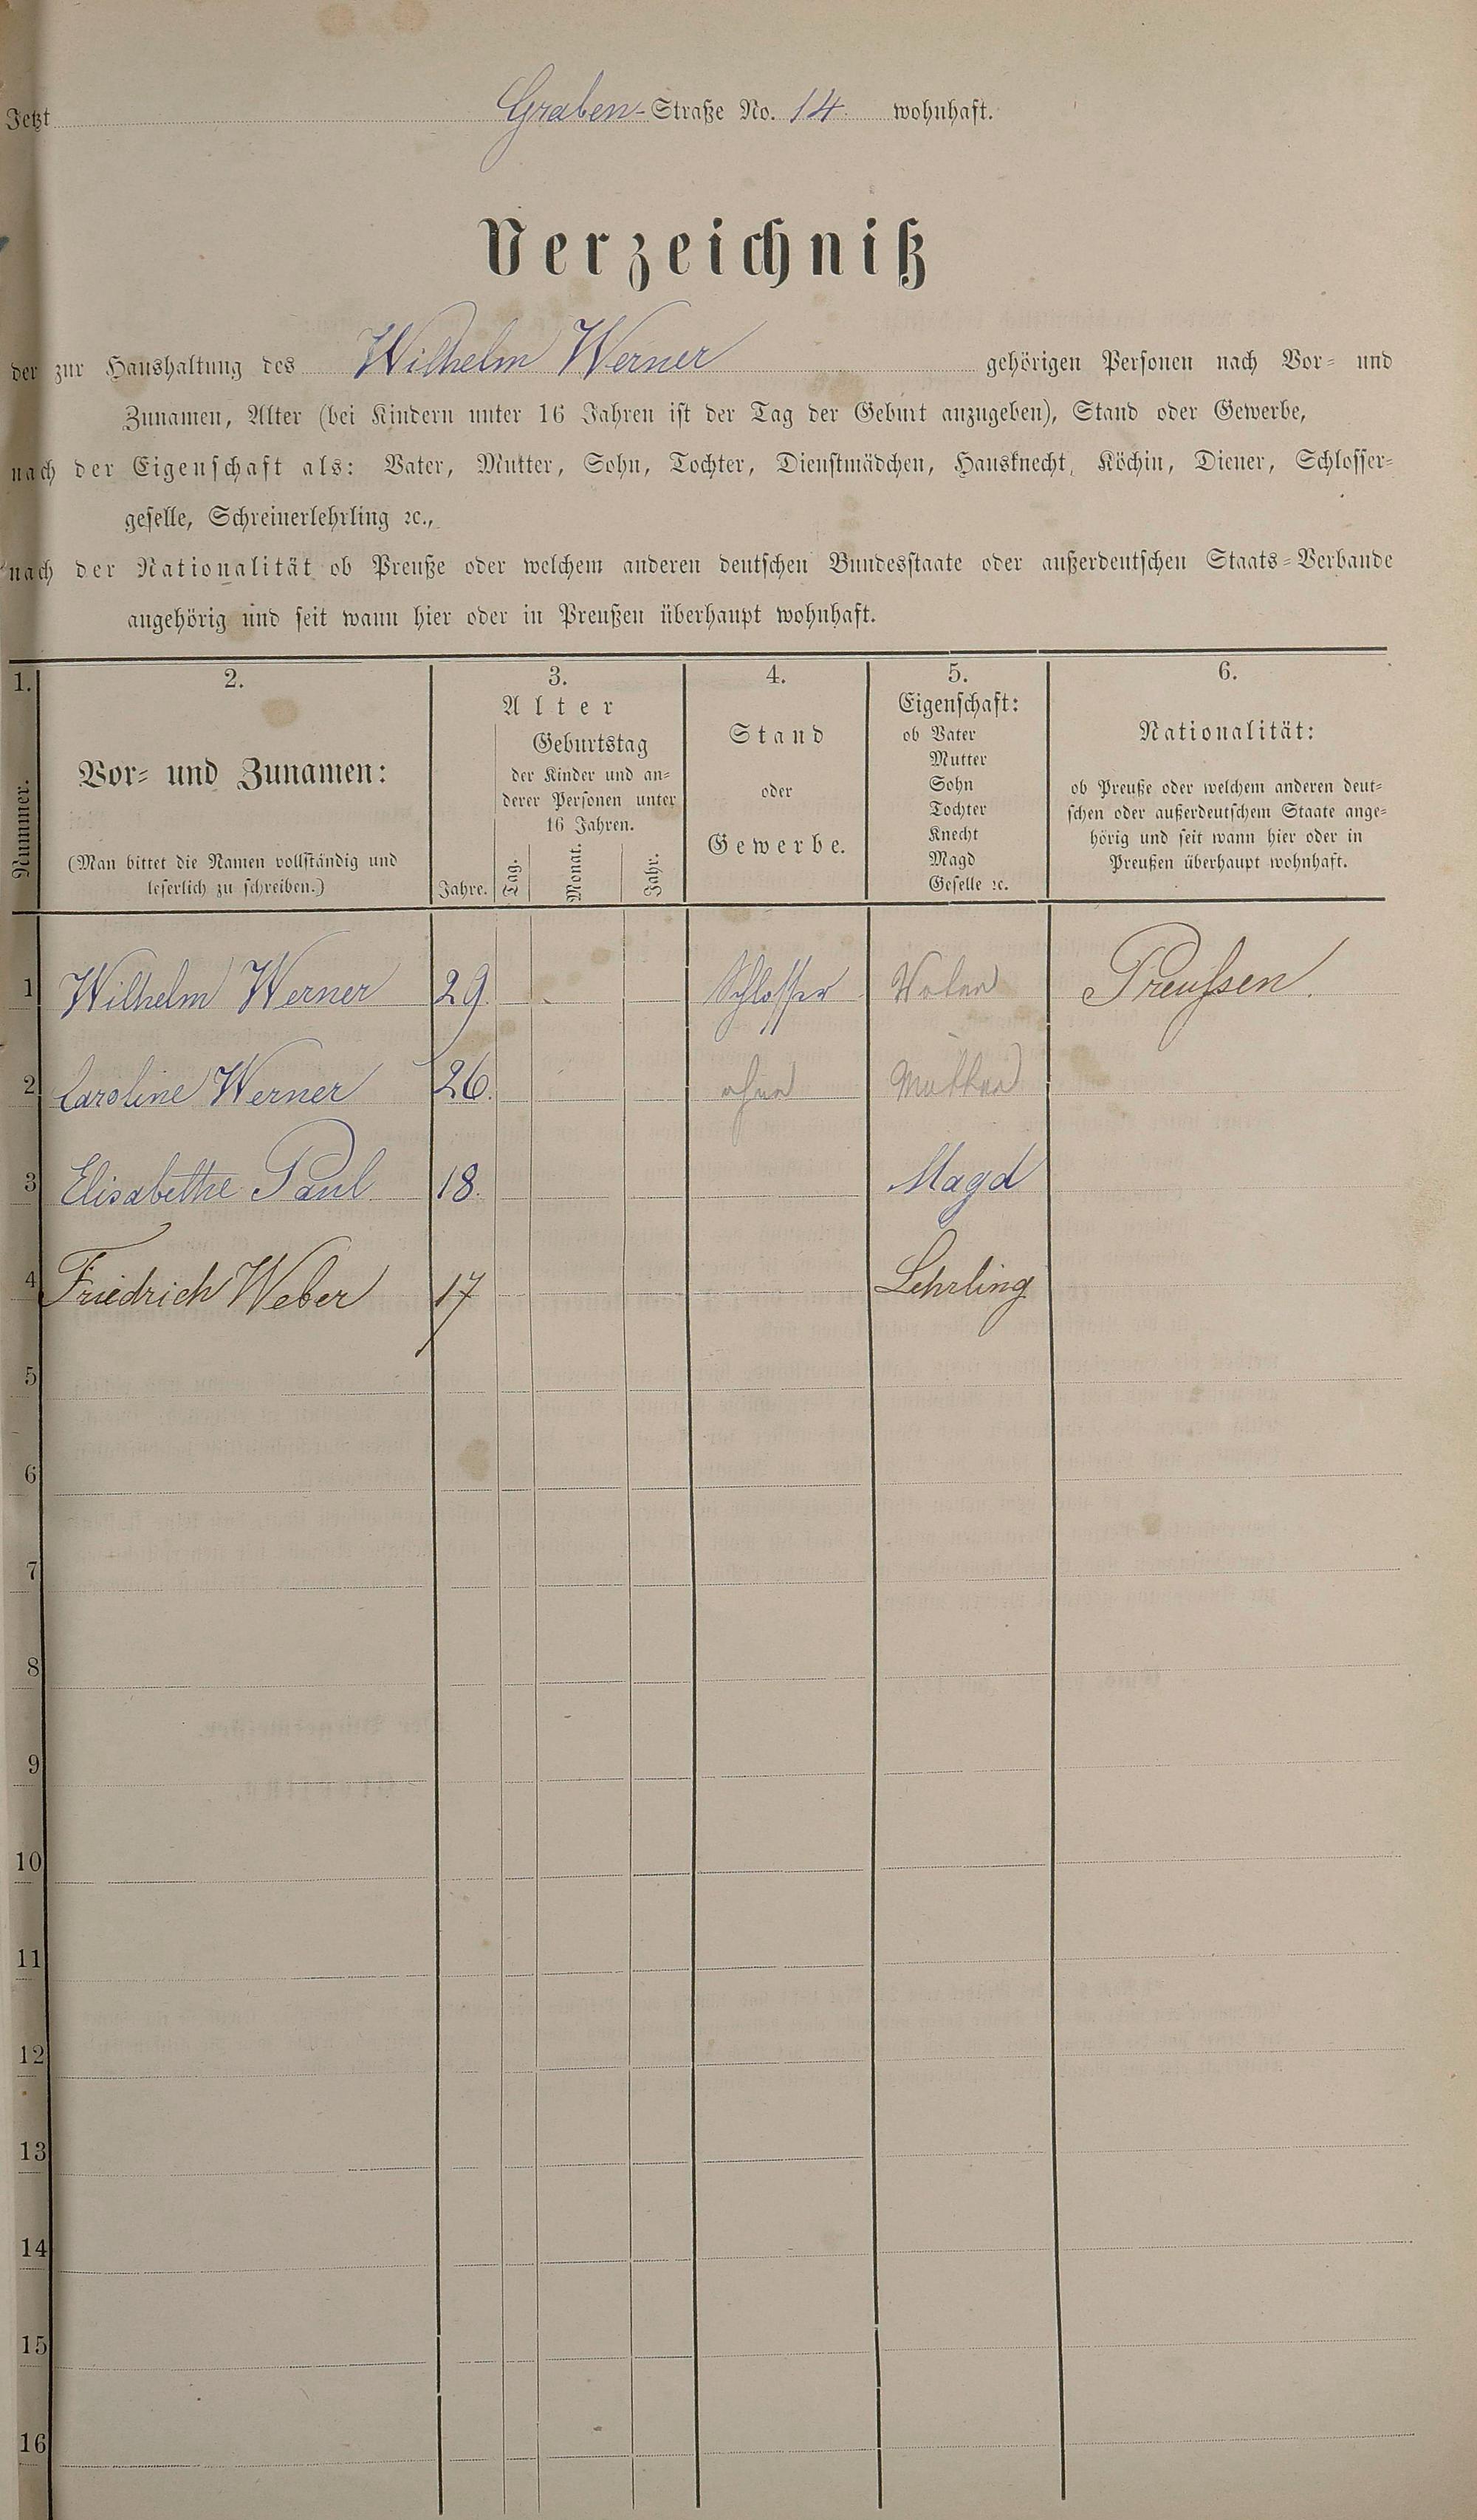 Jetzt Graben-Straße No. 14. wohnhaft.
Verzeichniß
der zur Haushaltung des Wilhelm Werner gehörigen Personen nach Vor- und
Zunamen, Alter (bei Kindern unter 16 Jahren ist der Tag der Geburt anzugeben), Stand oder Gewerbe,
nach der Eigenschaft als: Vater, Mutter, Sohn, Tochter, Dienstmädchen, Hausknecht, Köchin, Diener, Schlosser-
geselle, Schreinerlehrling ꝛc.,
nach der Nationalität ob Preuße oder welchem anderen deutschen Bundesstaate oder außerdeutschen Staats-Verbande
angehörig und seit wann hier oder in Preußen überhaupt wohnhaft.
1.
Nummer.
2.
Vor- und Zunamen:
(Man bittet die Namen vollständig und
leserlich zu schreiben.)
3.
Alter
Jahre.
Geburtstag
der Kinder und an-
derer Personen unter
16 Jahren.
Tag.
Monat.
Jahr.
4.
Stand
oder
Gewerbe.
5.
Eigenschaft:
ob Vater
Mutter
Sohn
Tochter
Knecht
Magd
Geselle ꝛc.
6.
Nationalität:
ob Preuße oder welchem anderen deut-
schen oder außerdeutschem Staate ange-
hörig und seit wann hier oder in
Preußen überhaupt wohnhaft.
1 Wilhelm Werner 29. Schlosser Vater Preussen.
2 Caroline Werner 26. ohne Mutter
3 Elisabethe Paul 18. Magd
4 Friedrich Weber 17 Lehrling
5
6
7
8
9
10
11
12
13
14
15
16